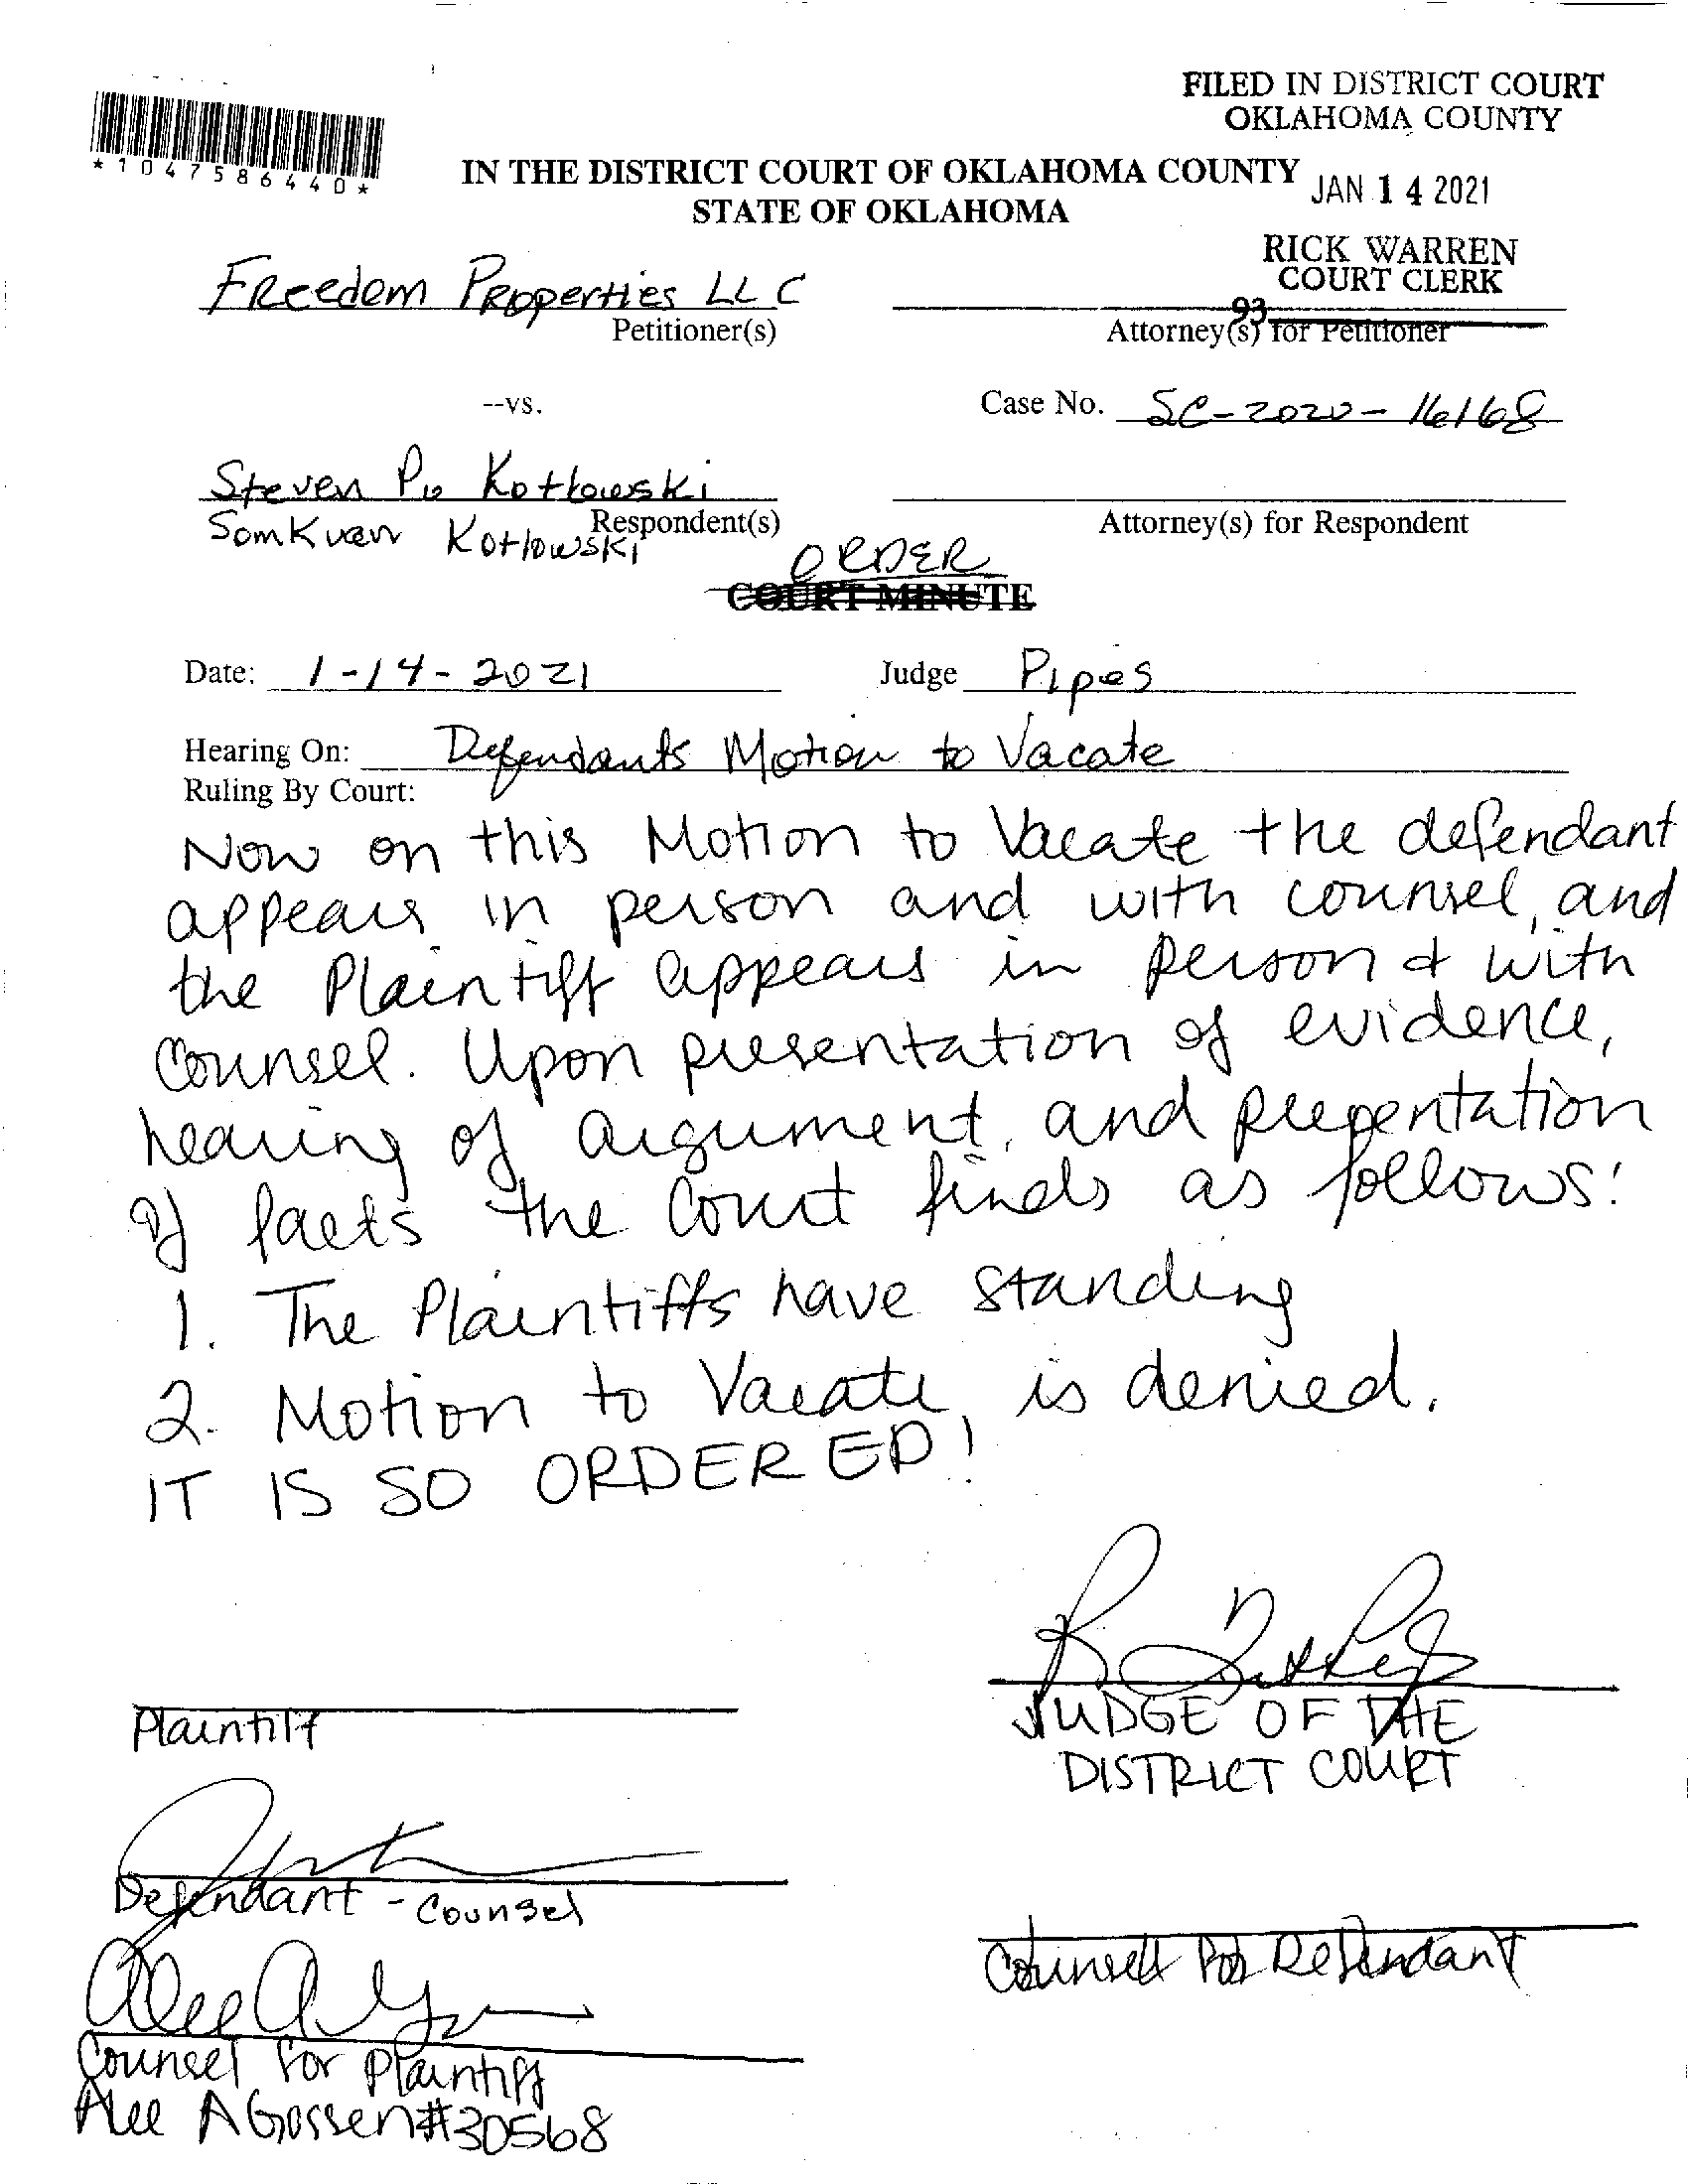 FILED IN DISTRICT COURT
OKLAHOMA COUNTY
*1047586440*
IN THE DISTRICT COURT OF OKLAHOMA COUNTY
STATE OF OKLAHOMA
JAN 14 2021
RICK WARREN
COURT CLERK
93
Freedom Properties LLC
Petitioner(s)
Attorney(s) for Petitioner
--vs.
Case No. SC-2020-16168
Steven Kotlowski
Somkuan Kotlowski
Respondent(s)
Attorney(s) for Respondent
ORDER
COURT MINUTE
Date: 1-14-2021
Judge Pipes
Hearing On: Defendants Motion to Vacate
Ruling By Court:
Now on this Motion to Vacate the defendant
appears in person and with counsel, and
the Plaintiff appears in person & with
Counsel. Upon presentation of evidence,
hearing of argument, and presentation
of facts the Court finds as follows:
1. The Plaintiffs have standing
2. Motion to Vacate is denied.
IT IS SO ORDERED!
JUDGE OF THE
DISTRICT COURT
Plaintiff
Defendant - Counsel
Counsel for Defendant
Counsel for Plaintiff
A Gossen #30568